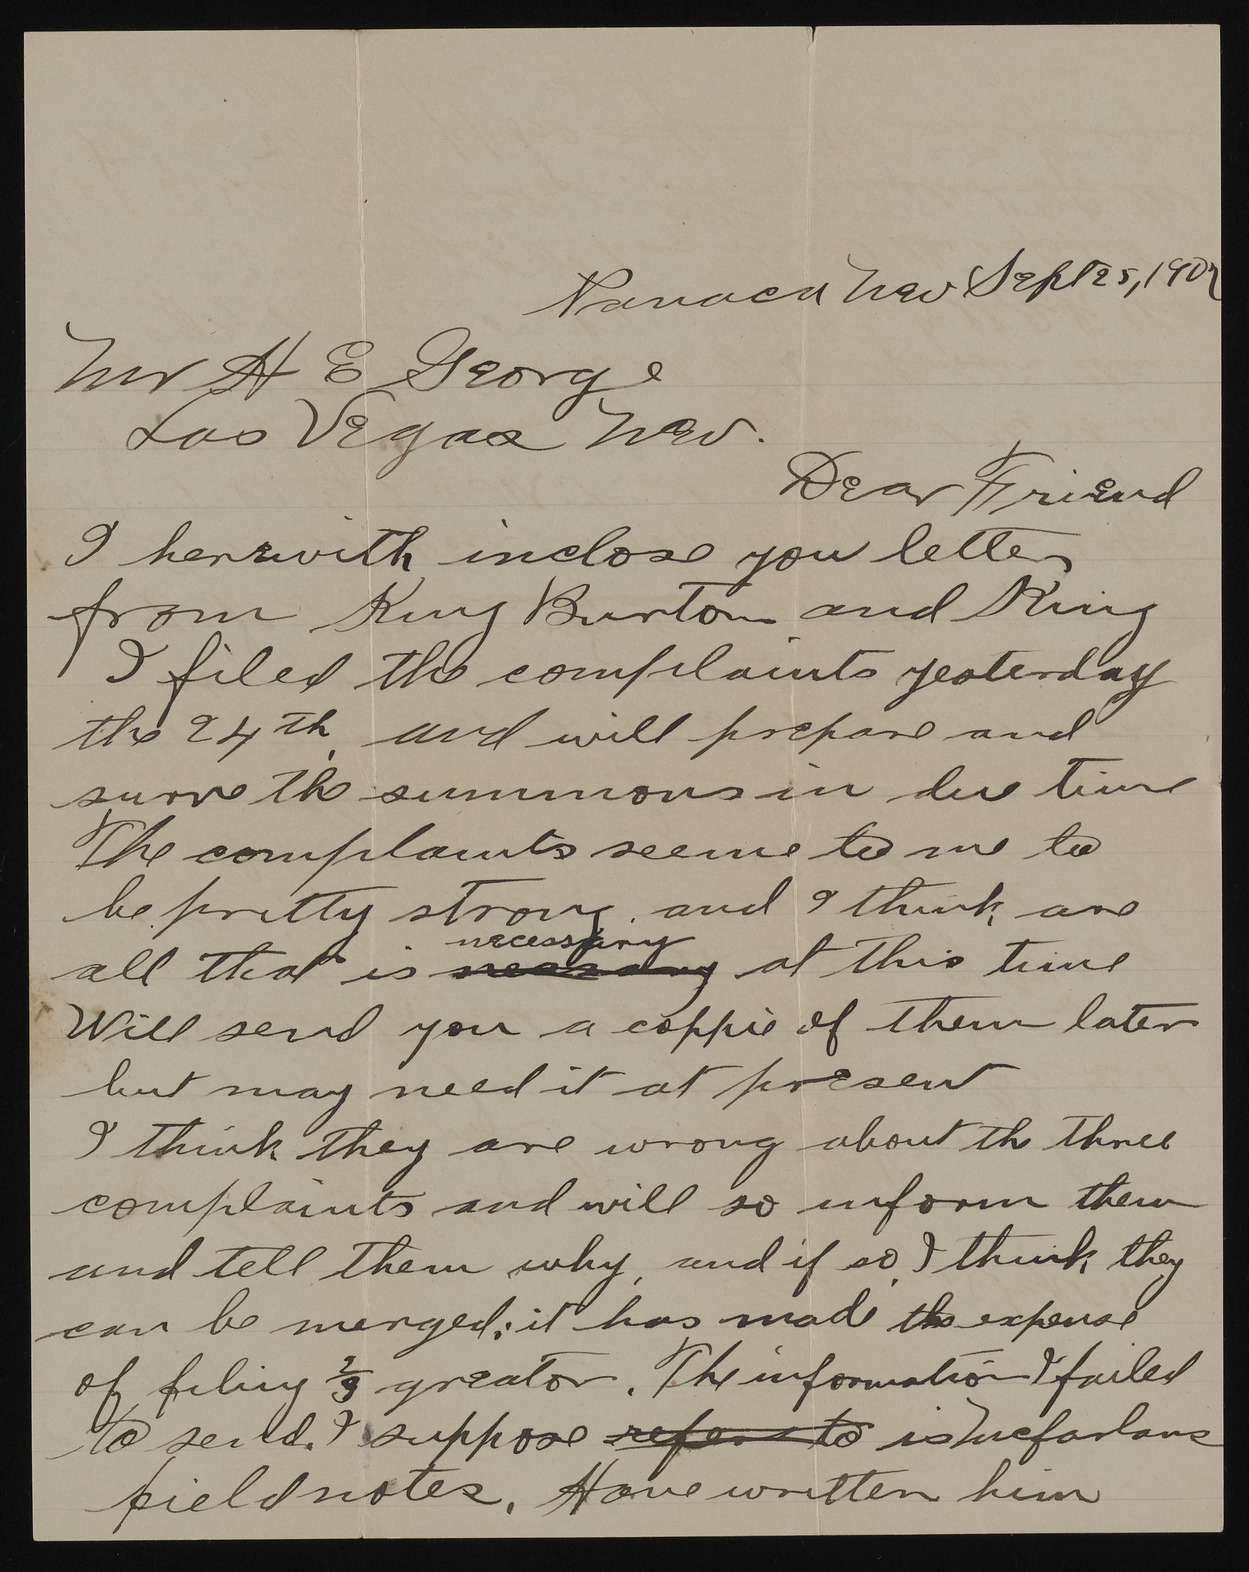 Panaca Nev Sept 25, 1907
Mr H E George
Las Vegas Nev.
Dear Friend
I herewith inclose you letter
from King Burton and King
I filed the complaints yesterday
the 24th, and will prepare and
surve the summons in due time
The complaints seeme to me to
be pretty strong. and I think are
necessary
all that is at this time
Will send you a coppie of them later
but may need it at present
I think they are wrong about th three
complaints and will so inform them
and tell them why, and if so, I think they
can be merged; it has made the expense
of filing 2/3 greator. The information I failed
to send. I suppose refers to is Mcfarlans
field notes. Have written him